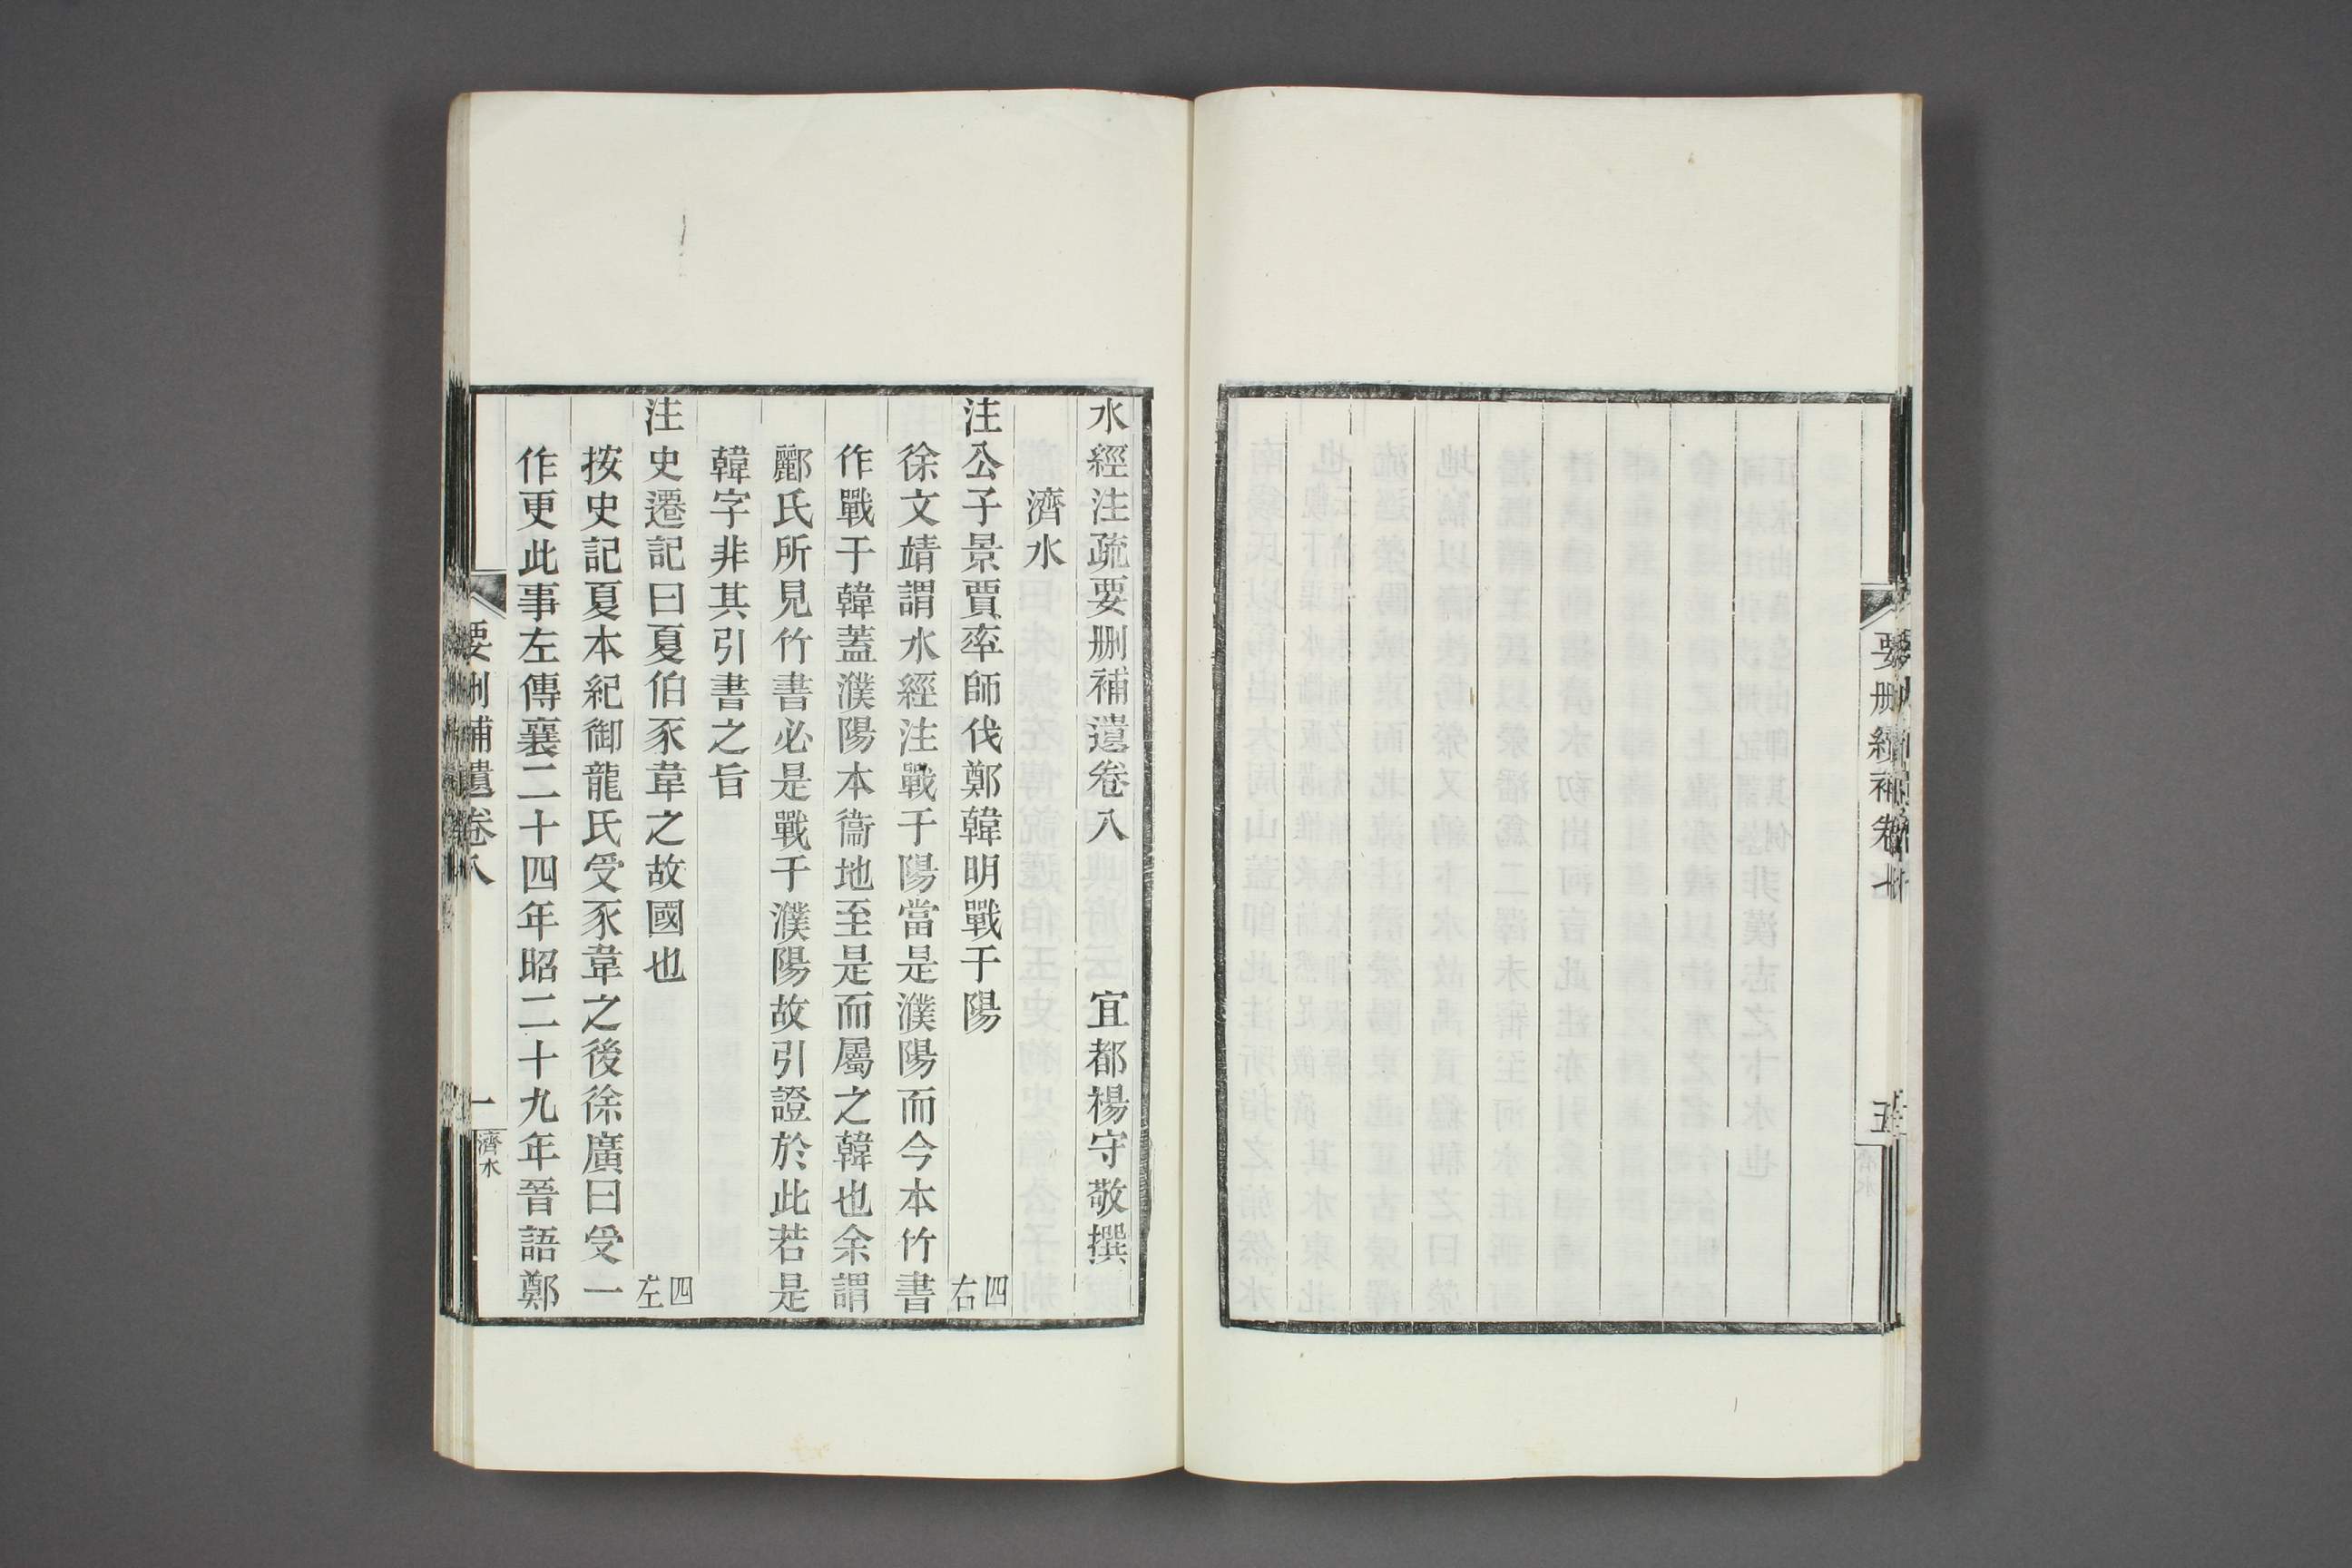 要刪續補卷七
五
水經注疏要刪補遺卷八 宜都楊守敬撰
濟水
注公子景賈率師伐鄭韓明戰于陽 四右
徐文靖謂水經注戰于陽當是濮陽而今本竹書
作戰于韓蓋濮陽本衞地至是而屬之韓也余謂
酈氏所見竹書必是戰于濮陽故引證於此若是
韓字非其引書之旨
注史遷記曰夏伯豕韋之故國也 四左
按史記夏本紀御龍氏受豕韋之後徐廣曰受一
作更此事左傳襄二十四年昭二十九年晉語鄭
要刪補遺卷八
一
濟水